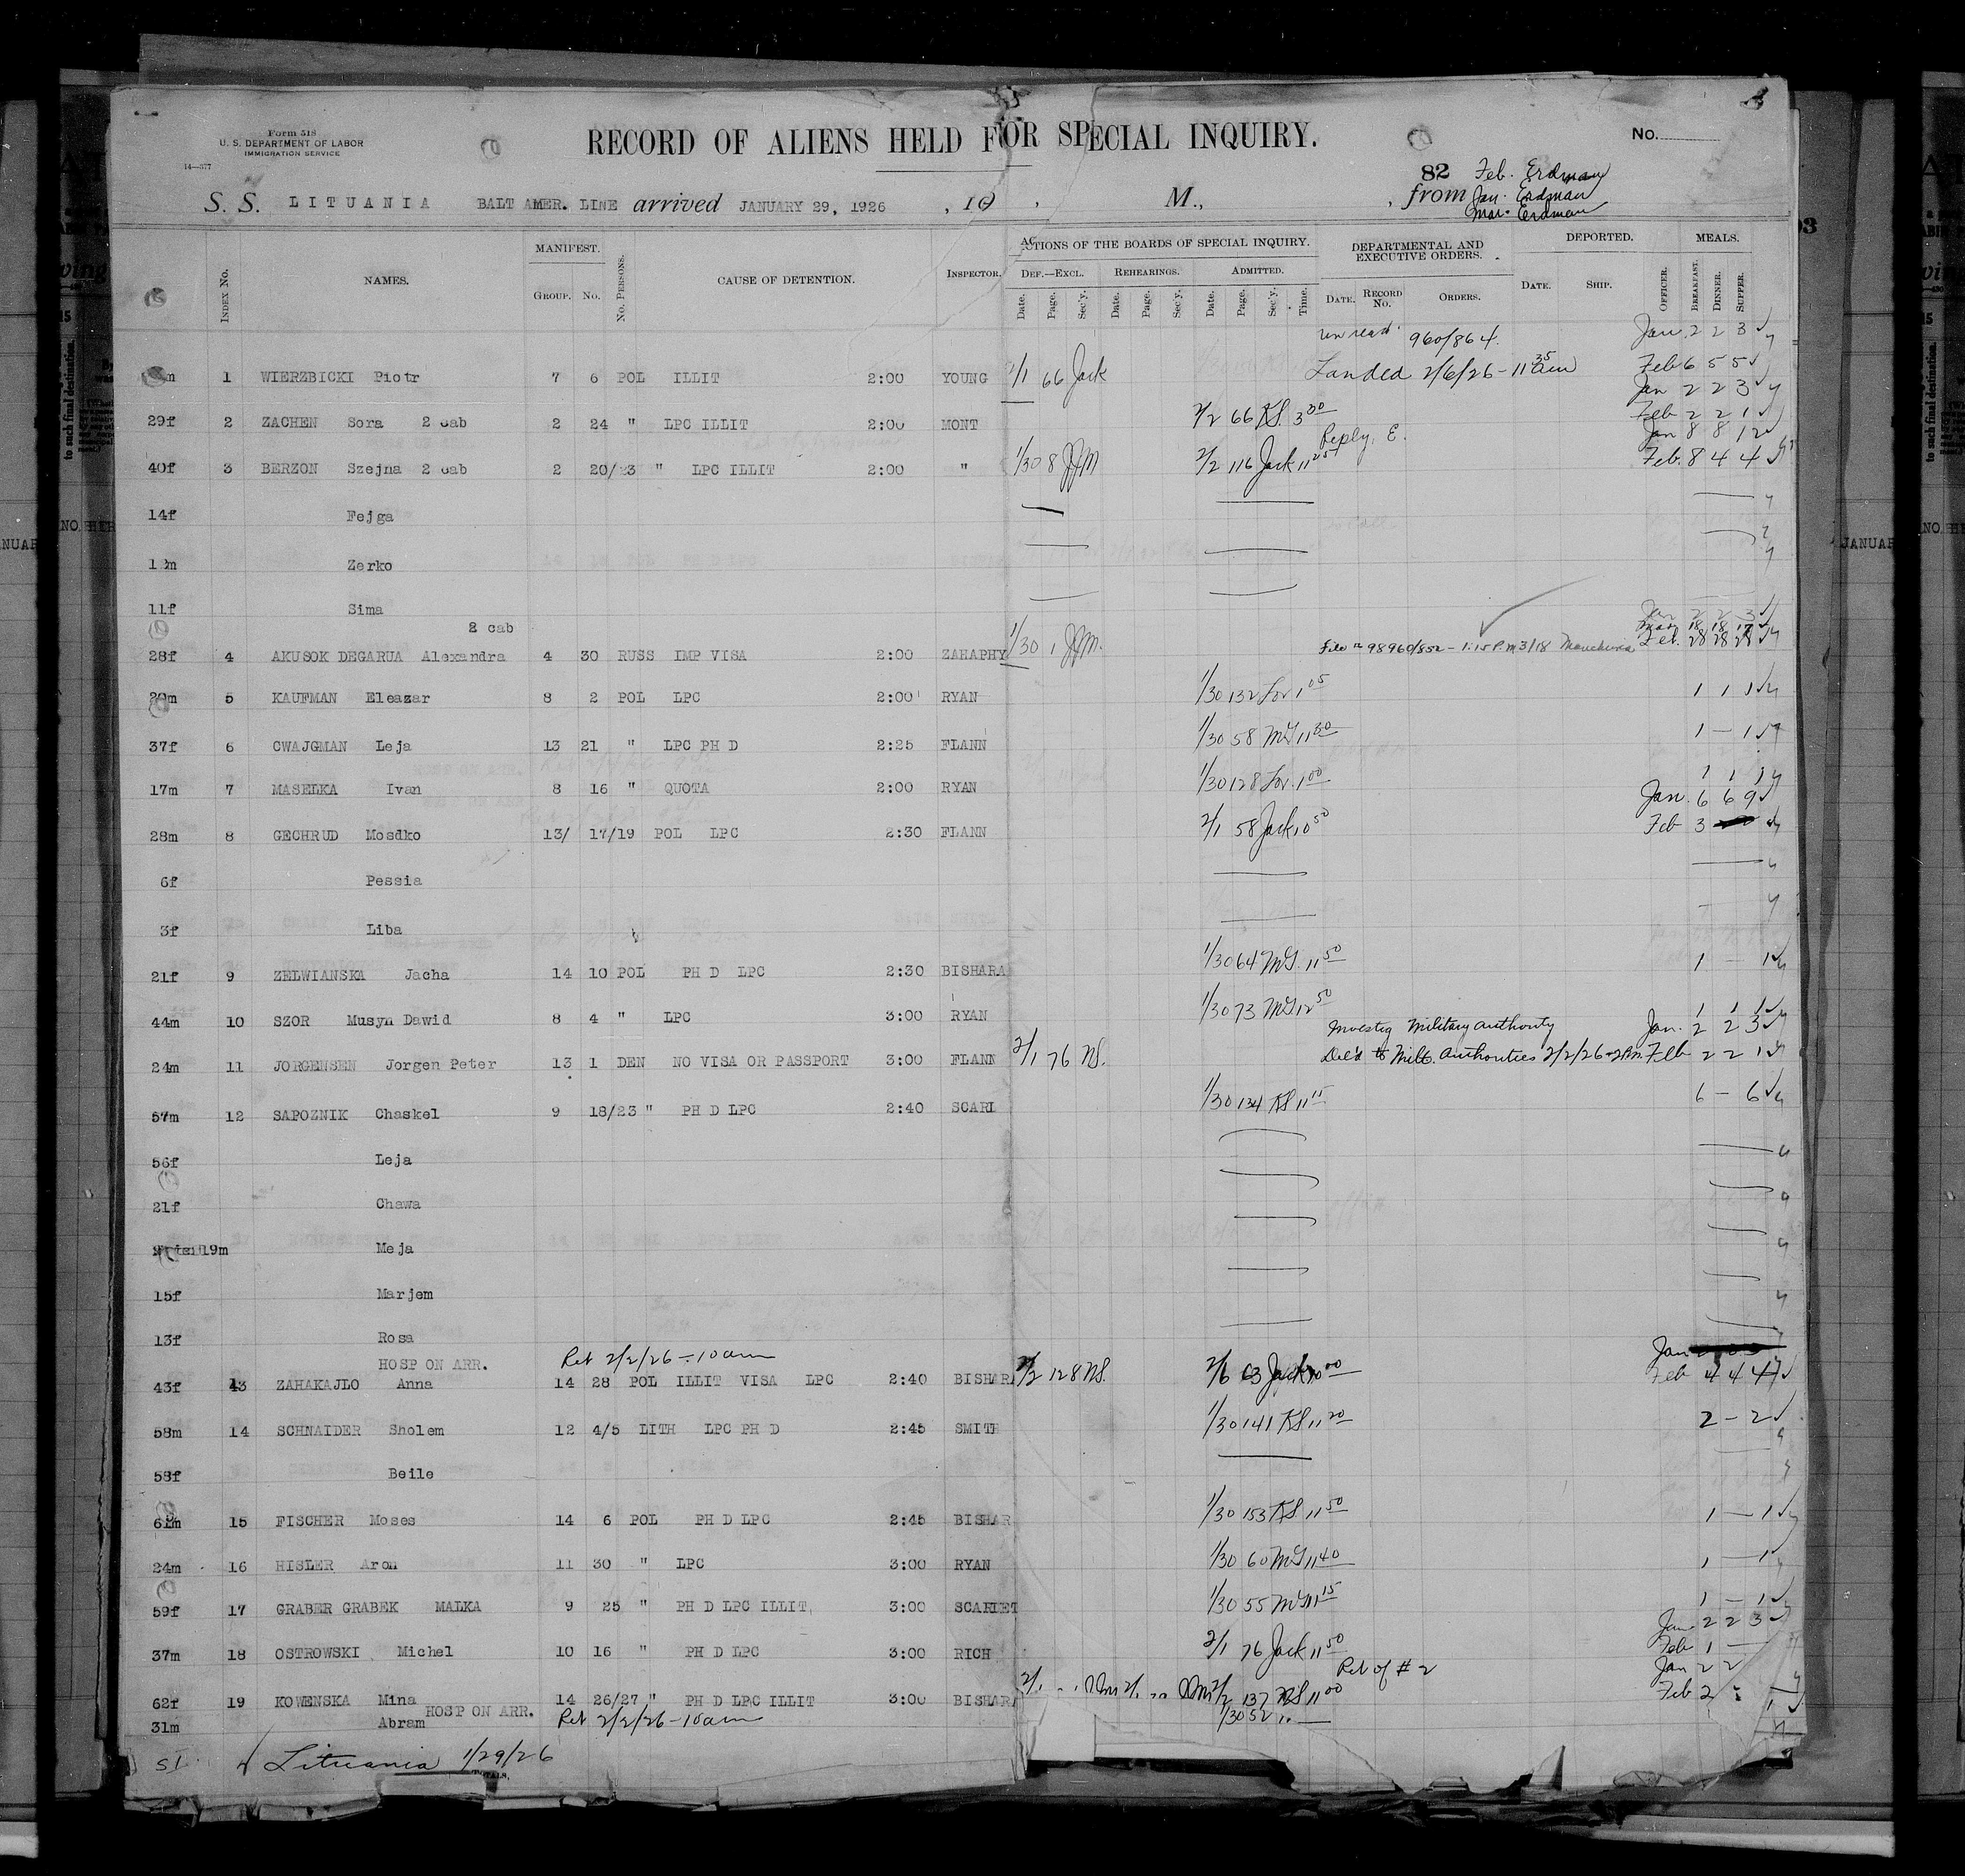 Form 518
U. S. DEPARTMENT OF LABOR
IMMIGRATION SERVICE
14—377
RECORD OF ALIENS HELD FOR SPECIAL INQUIRY.
No.
82 Feb. Erdman
S. S. LITUANIA BALT AMER. LINE arrived JANUARY 29, 1926, 19 , M., , from Jan. Erdman
Mar. Erdman
INDEX NO. NAMES. MANIFEST. GROUP. NO. NO. PERSONS. CAUSE OF DETENTION. INSPECTOR. ACTIONS OF THE BOARDS OF SPECIAL INQUIRY. DEF.—EXCL. Date. Page. Sec'y. REHEARINGS. Date. Page. Sec'y. ADMITTED. Date. Page. Sec'y. Time. DEPARTMENTAL AND EXECUTIVE ORDERS. DATE. RECORD NO. ORDERS. DEPORTED. DATE. SHIP. OFFICER. MEALS. BREAKFAST. DINNER. SUPPER.
960/864. Jan. 2 2 3
m 1 WIERZBICKI Piotr 7 6 POL ILLIT 2:00 YOUNG 2/1 66 Jack Landed 2/6/26 - 11 35 am Feb 6 5 5
Jan 2 2 3
29f 2 ZACHEN Sora 2 cab 2 24 " LPC ILLIT 2:00 MONT 2/2 66 KS. 3 30 Feb 2 2 1
Reply. E. Jan 8 8 12
40f 3 BERZON Szejna 2 cab 2 20/23 " LPC ILLIT 2:00 " 1/30 8 JJM 2/2 116 Jack 11 25 Feb. 8 4 4
14f Fejga
12m Zerko
11f Sima
2 cab Jan 2 2 3
Mar 18 18 17
28f 4 AKUSOK DEGARUA Alexandra 4 30 RUSS IMP VISA 2:00 ZAHAPHY 1/30 1 JJM. File # 98960/852 - 1:15 P.M 3/18 Feb. 28 28 28
30m 5 KAUFMAN Eleazar 8 2 POL LPC 2:00 RYAN 1/30 132 Lov 1 05 1 1 1
37f 6 CWAJGMAN Leja 13 21 " LPC PH D 2:25 FLANN 1/30 58 McG 11 30 1 - 1
17m 7 MASELKA Ivan 8 16 " QUOTA 2:00 RYAN 1/30 128 Lov. 1 00 1 1 1
Jan. 6 6 9
28m 8 GECHRUD Mosdko 13/ 17/19 POL LPC 2:30 FLANN 2/1 58 Jack 10 50 Feb 3
6f Pessia
3f Liba
21f 9 ZELWIANSKA Jacha 14 10 POL PH D LPC 2:30 BISHARA 1/30 64 McG. 11 50 1 - 1
44m 10 SZOR Musyn Dawid 8 4 " LPC 3:00 RYAN 1/30 73 McG 12 50 1 1 1
Investig Military authority Jan. 2 2 3
24m 11 JORGENSEN Jorgen Peter 13 1 DEN NO VISA OR PASSPORT 3:00 FLANN 2/1 76 NS. Del'd to Milt. Authorities 2/2/26 - 2 P.m. Feb 2 2 1
57m 12 SAPOZNIK Chaskel 9 18/23 " PH D LPC 2:40 SCARL 1/30 134 KS 11 15 6 - 6
56f Leja
21f Chawa
19m Meja
15f Marjem
13f Rosa
HOSP ON ARR. Ret 2/2/26 - 10 am Jan
43f 13 ZAHAKAJLO Anna 14 28 POL ILLIT VISA LPC 2:40 BISHARA 2/2 128 NS. 2/6 63 Jack 10 00 Feb 4 4 4
58m 14 SCHNAIDER Sholem 12 4/5 LITH LPC PH D 2:45 SMITH 1/30 141 KS 11 20 2 - 2
58f Beile
61m 15 FISCHER Moses 14 6 POL PH D LPC 2:45 BISHAR 1/30 153 KS 11 50 1 - 1
24m 16 HISLER Aron 11 30 " LPC 3:00 RYAN 1/30 60 McG 11 40 1 - 1
59f 17 GRABER GRABEK MALKA 9 25 " PH D LPC ILLIT 3:00 SCARLET 1/30 55 McG 11 15 1 - 1
Jan 2 2 3
37m 18 OSTROWSKI Michel 10 16 " PH D LPC 3:00 RICH 2/1 76 Jack 11 50 Feb 1 -
Ret of # 2 Jan 2 2
62f 19 KOWENSKA Mina 14 26/27 " PH D LPC ILLIT 3:00 BISHARA 2/1 2/2 137 NS 11 00 Feb 2
HOSP ON ARR. Ret 2/2/26 - 10 am
31m Abram 1/30 52
SI Lituania 1/29/26
TOTALS,
JANUAR